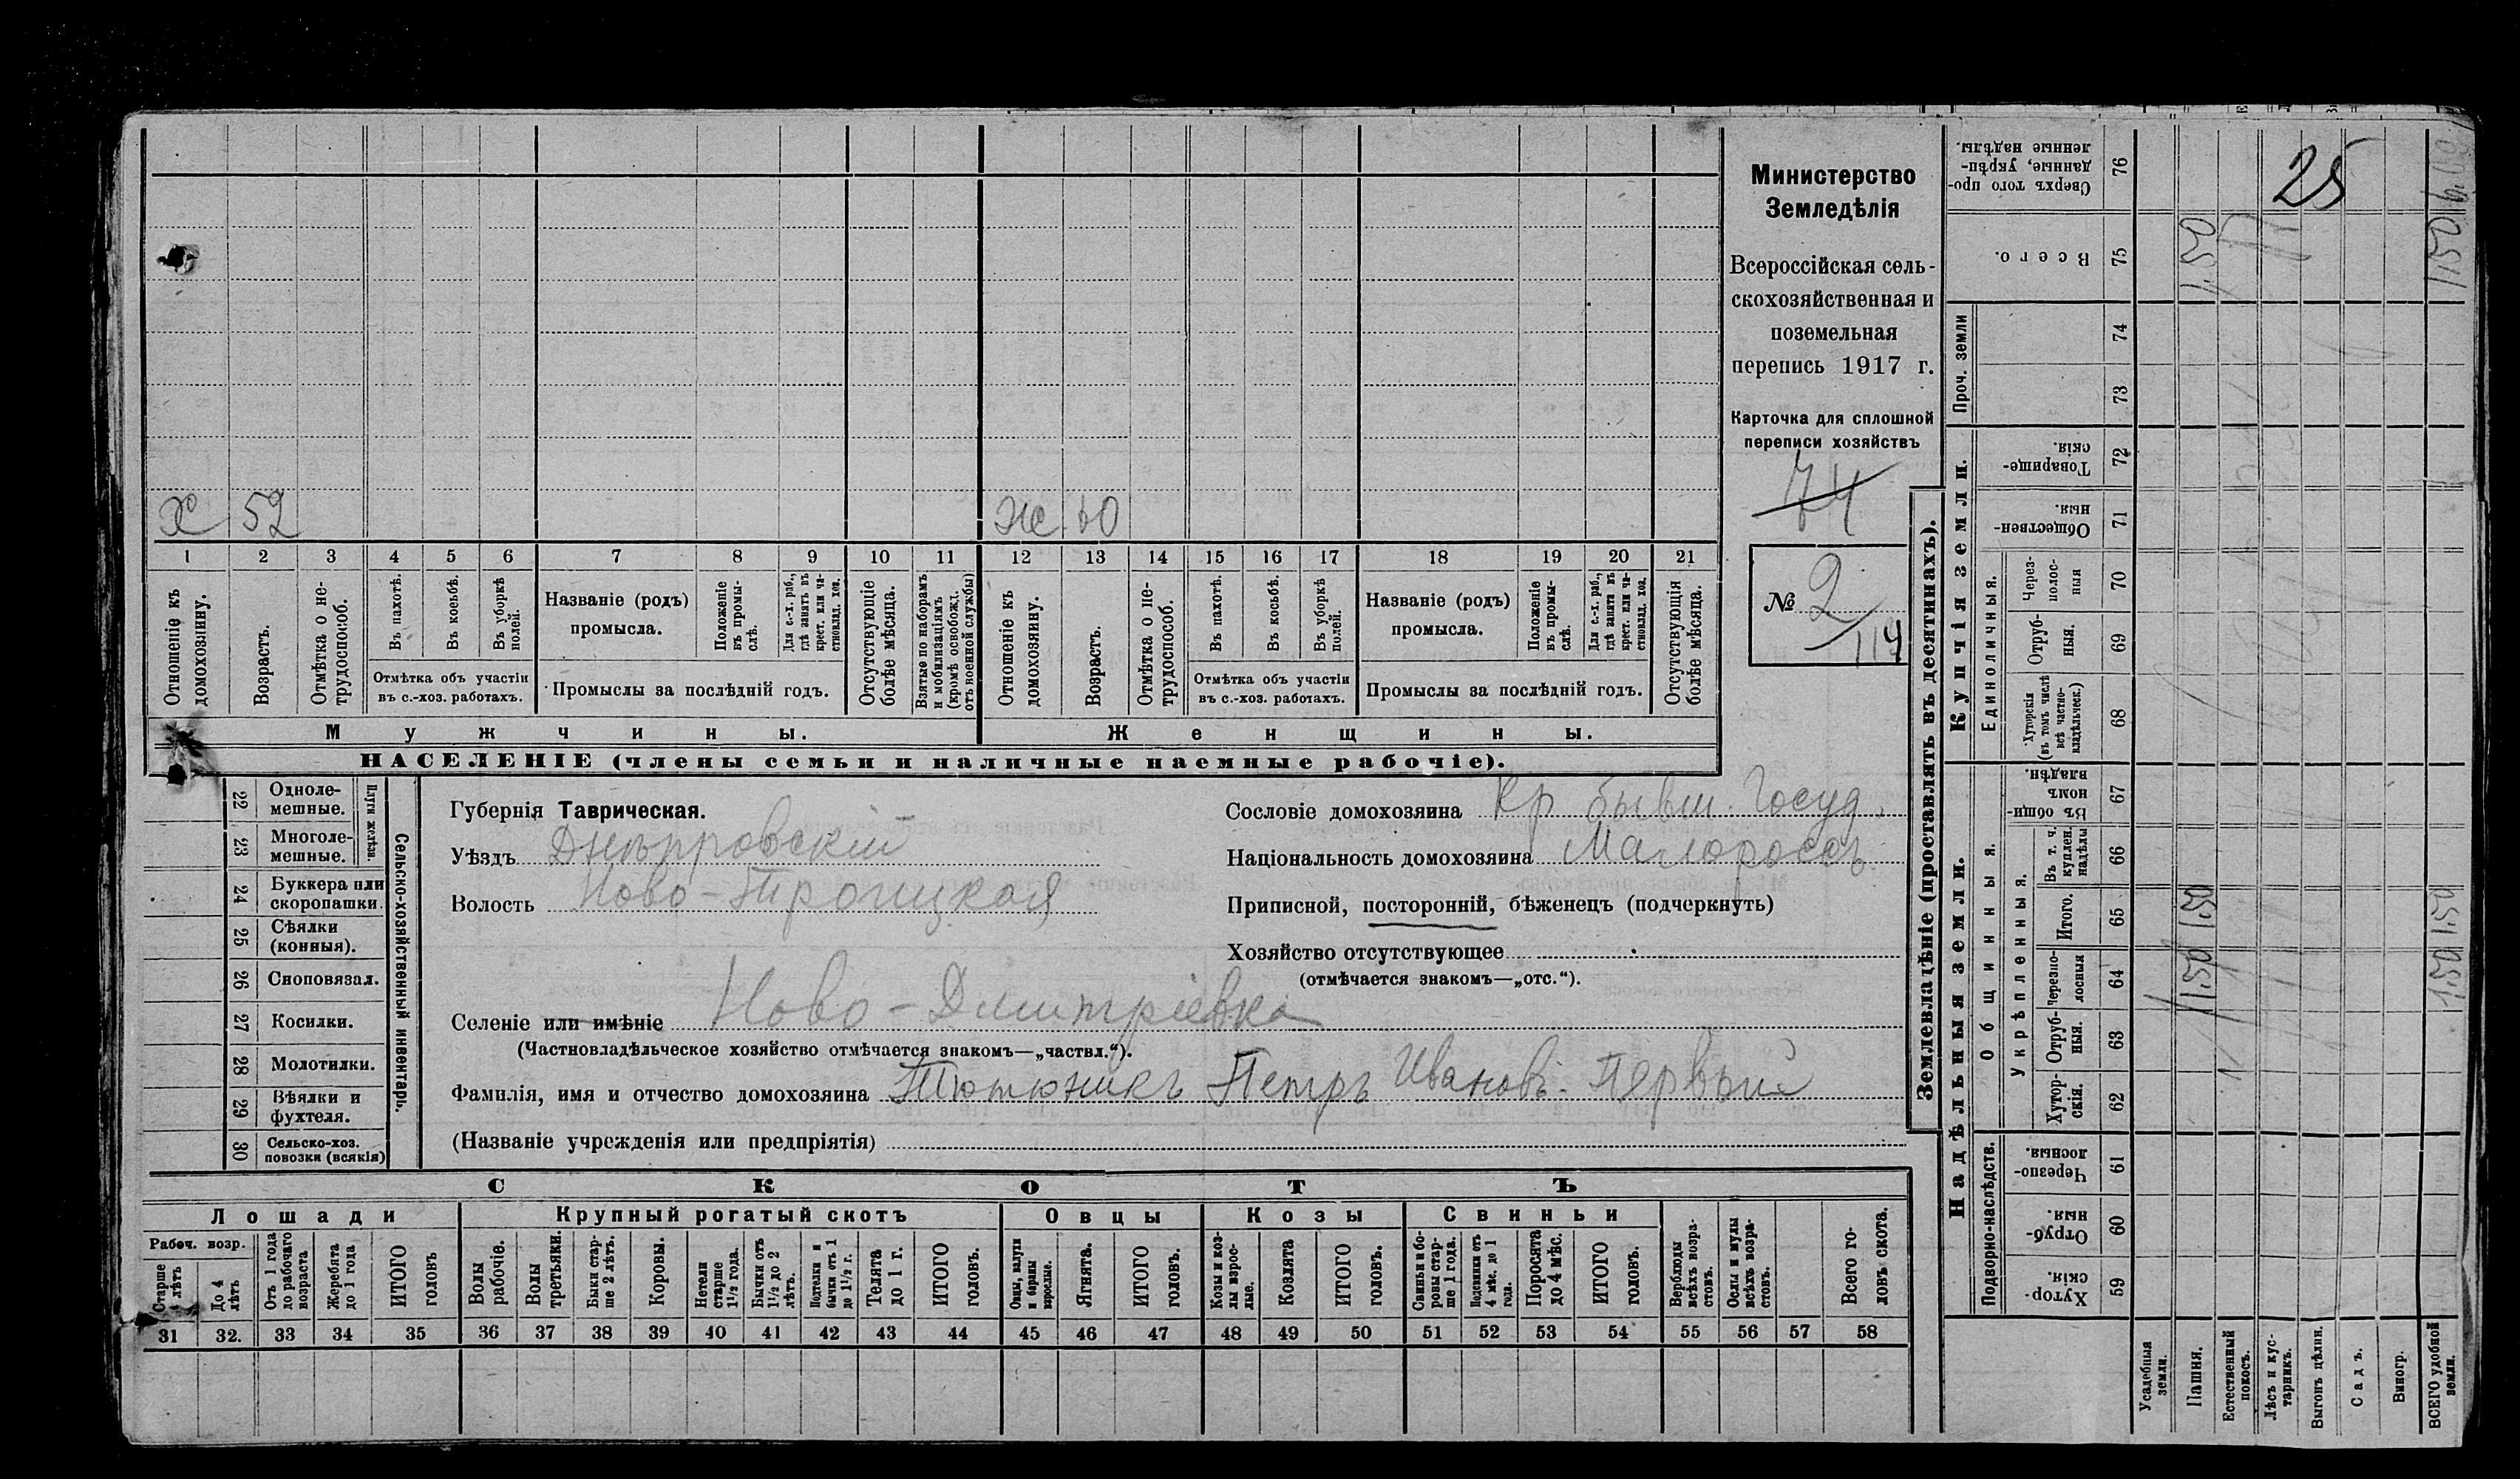 Министерство
Земледѣлія
Всероссійская сель-
скохозяйственная и
поземельная
перепись 1917 г.
Карточка для сплошной
переписи хозяйствъ
74
№ 2
114
х 52
ж 60
1 2 3 4 5 6 7 8 9 10 11 12 13 14 15 16 17 18 19 20 21
Отношеніе къ домохозяину.
Возрастъ.
Отмѣтка о не-трудоспособ.
Въ пахотѣ.
Въ косьбѣ.
Въ уборкѣ полей.
Отмѣтка объ участіи
въ с.-хоз. работахъ.
Названіе (родъ)
промысла.
Положеніе въ промы-слѣ.
Для с.-х. раб., гдѣ занятъ въ крест. или ча-стновлад. хоз.
Промыслы за послѣдній годъ.
Отсутствующіе болѣе мѣсяца.
Взятые по наборамъ и мобилизаціямъ (кромѣ освобожд. отъ военной службы)
Отношеніе къ домохозяину.
Возрастъ.
Отмѣтка о не-трудоспособ.
Въ пахотѣ.
Въ косьбѣ.
Въ уборкѣ полей.
Отмѣтка объ участіи
въ с.-хоз. работахъ.
Названіе (родъ)
промысла.
Положеніе въ промы-слѣ.
Для с.-х. раб., гдѣ занята въ крест. или ча-стновлад. хоз.
Промыслы за послѣдній годъ.
Отсутствующія болѣе мѣсяца.
Мужчины.
Женщины.
НАСЕЛЕНІЕ (члены семьи и наличные наемные рабочіе).
22 Одноле-мешные.
23 Многоле-мешные.
Плуги желѣзн.
24 Буккера или скоропашки.
25 Сѣялки (конныя).
26 Сноповязал.
27 Косилки.
28 Молотилки.
29 Вѣялки и фухтеля.
30 Сельско-хоз. повозки (всякія)
Сельско-хозяйственный инвентарь.
Губернія Таврическая.
Уѣздъ Днѣпровскій
Волость Ново-Троицкая
Селеніе или имѣніе Ново-Дмитріевка
(Частновладѣльческое хозяйство отмѣчается знакомъ—„частвл.“).
Фамилія, имя и отчество домохозяина Тютюникъ Петръ Иванов. Первый
(Названіе учрежденія или предпріятія)
Сословіе домохозяина Кр. бывш. Госуд.
Національность домохозяина Малороссъ
Приписной, посторонній, бѣженецъ (подчеркнуть)
Хозяйство отсутствующее
(отмѣчается знакомъ—„отс.“).
СКОТЪ
Лошади
Крупный рогатый скотъ
Овцы
Козы
Свиньи
Рабоч. возр.
Старше 4 лѣтъ
До 4 лѣтъ
Отъ 1 года до рабочаго возраста
Жеребята до 1 года
ИТОГО головъ
Волы рабочіе.
Волы третьяки.
Быки стар-ше 2 лѣтъ.
Коровы.
Нетели старше 1½ года.
Бычки отъ 1½ до 2 лѣтъ.
Подтелки и бычки отъ 1 до 1½ г.
Телята до 1 г.
ИТОГО головъ.
Овцы, валухи и бараны взрослые.
Ягнята.
ИТОГО головъ.
Козы и коз-лы взрос-лые.
Козлята
ИТОГО головъ.
Свиньи и бо-ровы стар-ше 1 года.
Подсвинки отъ 4 мѣс. до 1 года.
Поросята до 4 мѣс.
ИТОГО головъ.
Верблюды всѣхъ возра-стовъ.
Ослы и мулы всѣхъ возра-стовъ.
Всего го-ловъ скота.
31 32. 33 34 35 36 37 38 39 40 41 42 43 44 45 46 47 48 49 50 51 52 53 54 55 56 57 58
Землевладѣніе (проставлять въ десятинахъ).
Надѣльныя земли.
Купчія земли.
Проч. земли
Сверхъ того про-данные, укрѣп-ленные надѣлы. 76
Всего. 75
74
73
Товарище-скія. 72
Обществен-ныя. 71
Единоличныя.
Через-полос-ныя 70
Отруб-ныя. 69
Хуторскія (въ томъ числѣ всѣ частно-владѣльческ.) 68
Общинныя.
Въ общи-номъ владѣн. 67
Укрѣпленныя.
Въ т. ч. куплен. надѣлы 66
Итого. 65
Черезпо-лосныя 64
Отруб-ныя. 63
Хутор-скія. 62
Подворно-наслѣдств.
Черезпо-лосныя. 61
Отруб-ныя. 60
Хутор-скія. 59
Усадебныя земли.
Пашня.
Естественный покосъ.
Лѣсъ и кус-тарникъ.
Выгонъ цѣлин.
Садъ.
Виногр.
ВСЕГО удобной земли.
25
1,50
1,50
1,50
1,50
1,50
1,50